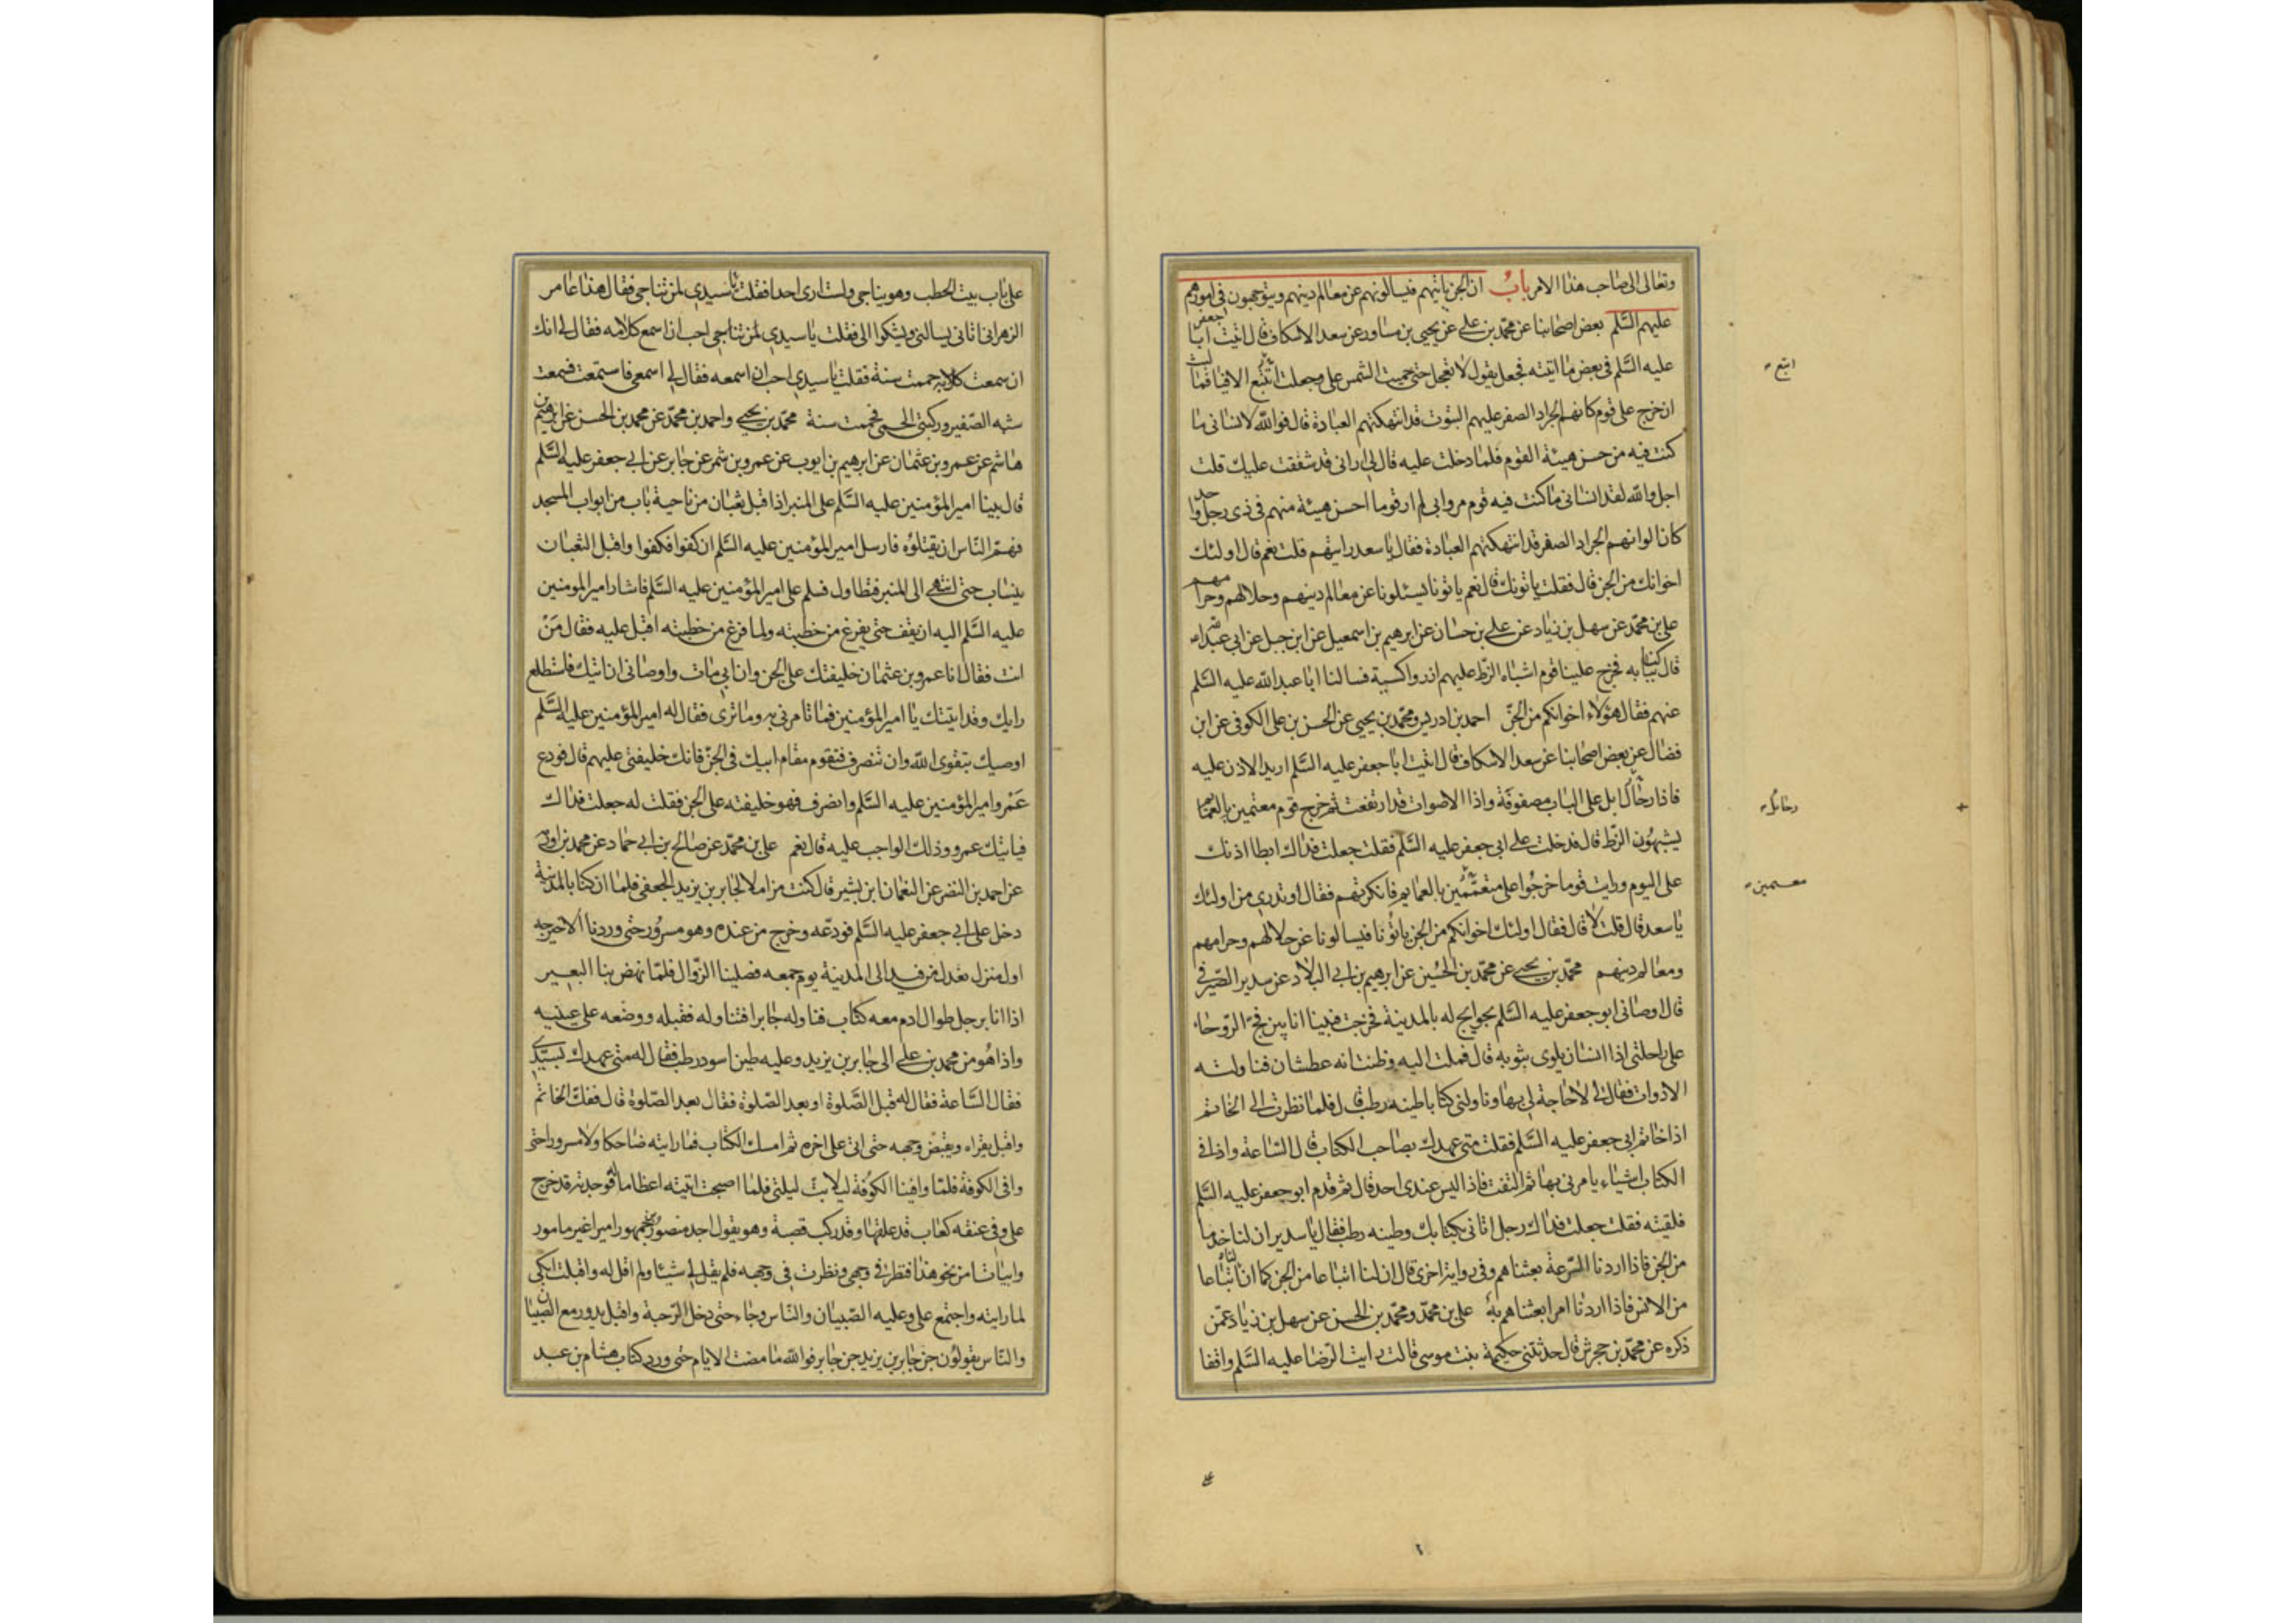 وتعالى الى صاحب هذا الامر باب ان الجن ياتيهم فيسالونهم عن معالم دينهم ويتوجهون في امورهم
عليهم السَّلم بعض اصحابنا عن محمّد بن علي عن يحيى بن مساور عن سعد الاسكاف قال اتيت ابا جعفر
عليه السَّلم في بعض ما اتيته فجعل يقول لا تعجل حتى حميت الشمس علي وجعلت اتتبع الافياء فما لبث
ان خرج على قوم كانهم الجراد الصفر عليهم البتوت قد انتهكتهم العبادة قال فوالله لانسانى ما
كنت فيه من حسن هيئة القوم فلما دخلت عليه قال لي ارانى قد شققت عليك قلت
اجل والله لقد انسانى ما كنت فيه قوم مروا بي لم ار قوما احسن هيئة منهم في زى رجل واحد
كان الوانهم الجراد الصفر قد انتهكتهم العبادة فقال يا سعد رايتهم قلت نعم قال اولئك
اخوانك من الجن قال فقلت ياتونك قال نعم ياتونا يسئلونا عن معالم دينهم وحلالهم وحرامهم
علي بن محمّد عن سهل بن زياد عن علي بن حسان عن ابرهيم بن اسمعيل عن ابن جبل عن ابى عبد الله
قال كنا ببابه فخرج علينا قوم اشباه الزط عليهم ازر واكسية فسالنا ابا عبد الله عليه السَّلم
عنهم فقال هؤلاء اخوانكم من الجنّ احمد بن ادريس ومحمّد بن يحيى عن الحسن بن علي الكوفي عن ابن
فضال عن بعض اصحابنا عن سعد الاسكاف قال اتيت ابا جعفر عليه السَّلم اريد الاذن عليه
فاذا رحال ابل على الباب مصفوفة واذا الاصوات قد ارتفعت ثم خرج قوم معتمين بالعمائم
يشبهون الزّط قال فدخلت على ابى جعفر عليه السَّلم فقلت جعلت فداك ابطا اذنك
على اليوم ورايت قوما خرجوا علي متعمّمين بالعمايم فانكرتهم فقال اوتدري من اولئك
يا سعد قال قلت لا قال فقال اولئك اخوانكم من الجن ياتونا فيسالونا عن حلالهم وحرامهم
ومعالم دينهم محمّد بن يحيى عن محمّد بن الحسين عن ابرهيم بن ابي البلاد عن سدير الصّيرفي
قال اوصانى ابو جعفر عليه السَّلم بحوايج له بالمدينة فخرجت فبينا انا بين فجّ الرّوحاء
على راحلتى اذا انسان يلوى بثوبه قال فملت اليه وظننت انه عطشان فناولته
الادوات فقال لي لا حاجة لي بها وناولنى كتابا طينه رطب قال فلما نظرت الى الخاتم
اذا خاتم ابي جعفر عليه السَّلم فقلت متى عهدك بصاحب الكتاب قال السّاعة واذا في
الكتاب اشياء يامرنى بها ثم التفت فاذا ليس عندى احد قال ثم قدم ابو جعفر عليه السَّلم
فلقيته فقلت جعلت فداك رجل اتانى بكتابك وطينه رطب فقال يا سدير ان لنا خدما
من الجن فاذا اردنا السّرعة بعثناهم وفي رواية اخرى قال ان لنا اتباعا من الجن كما ان لنا اتباعا
من الانس فاذا اردنا امرا بعثناهم به علي بن محمّد ومحمّد بن الحسن عن سهل بن زياد عمّن
ذكره عن محمّد بن جحرش قال حدثتنى حكيمة بنت موسى قالت رايت الرّضا عليه السَّلم واقفا
اتتبع
رحائل
معتمين
على باب بيت الحطب وهو يناجى ولست ارى احدا فقلت يا سيدي لمن تناجى فقال هذا عامر
الزهرانى اتانى يسالنى ويشكوا الى فقلت يا سيدي لمن تناجي احب ان اسمع كلامه فقال لي انك
ان سمعت كلامه حممت سنة فقلت يا سيدي احب ان اسمعه فقال لي اسمعى فاستمعت فسمعت
شبه الصّفير وركبتنى الحمى فحممت سنة محمّد بن يحيى واحمد بن محمّد عن محمد بن الحسن عن ابرهيم بن
هاشم عن عمرو بن عثمان عن ابرهيم بن ايوب عن عمرو بن شمر عن جابر عن ابي جعفر عليه السَّلم
قال بينا امير المؤمنين عليه السَّلم على المنبر اذا قبل ثعبان من ناحية باب من ابواب المسجد
فهمّ النّاس ان يقتلوه فارسل امير المؤمنين عليه السَّلم ان كفوا فكفوا واقبل الثعبان
ينساب حتى انتهى الى المنبر فتطاول فسلم على امير المؤمنين عليه السَّلم فاشار امير المومنين
عليه السَّلم اليه ان يقف حتى يفرغ من خطبته ولما فرغ من خطبته اقبل عليه فقال مَنْ
انت فقال انا عمرو بن عثمان خليفتك على الجن وان ابي مات واوصانى ان اتيك فاستطلع
رايك وقد اتيتك يا امير المؤمنين فما تامرنى به وما ترى فقال له امير المؤمنين عليه السَّلم
اوصيك بتقوى الله وان تنصرف فتقوم مقام ابيك في الجنّ فانك خليفتى عليهم قال فودع
عَمْرو امير المؤمنين عليه السَّلم وانصرف فهو خليفته على الجن فقلت له جعلت فداك
فياتيك عمرو وذلك الواجب عليه قال نعم علي بن محمّد عن صالح بن ابي حماد عن محمد بن اورمة
عن احمد بن النضر عن النعمان ابن بشير قال كنت مزاملا لجابر بن يزيد الجعفي فلما ان كنا بالمدينة
دخل على ابي جعفر عليه السَّلم فودعه وخرج من عنده وهو مسرور حتى وردنا الاخيرجه
اول منزل تعدل من فيد الى المدينة يوم جمعه فصلينا الزّوال فلمّا نهض بنا البعير
اذا انا برجل طوال ادم معه كتاب فناوله جابرا فتناوله فقبله ووضعه على عينيه
واذا هو من محمد بن علي الى جابر بن يزيد وعليه طين اسود رطب فقال له متى عهدك بسيّدي
فقال السَّاعة فقال له قبل الصَّلوة او بعد الصّلوة فقال بعد الصّلوة قال ففكّ الخاتم
واقبل يقراه ويقبض وجهه حتى اتى على اخره ثم امسك الكتاب فما رايته ضاحكا ولا مسرورا حتى
وافى الكوفة فلمّا وافينا الكوفة ليلا بتّ ليلتى فلما اصبحت اتيته اعظاما له فوجدته قد خرج
على وفي عنقه كعاب قد علقها وقد ركب قصبة وهو يقول اجد منصور بن جمهور اميرا غير مامور
وابياتا من نحو هذا فنظر في وجهى ونظرت في وجهه فلم يقل لي شيئا ولم اقل له واقبلت ابكى
لما رايته واجتمع على وعليه الصّبيان والنّاس وجاء حتى دخل الرّحبة واقبل يدور مع الصّبيان
والنّاس يقولون جنّ جابر بن يزيد جن جابر فوالله ما مضت الايام حتى ورد كتاب هشام بن عبد